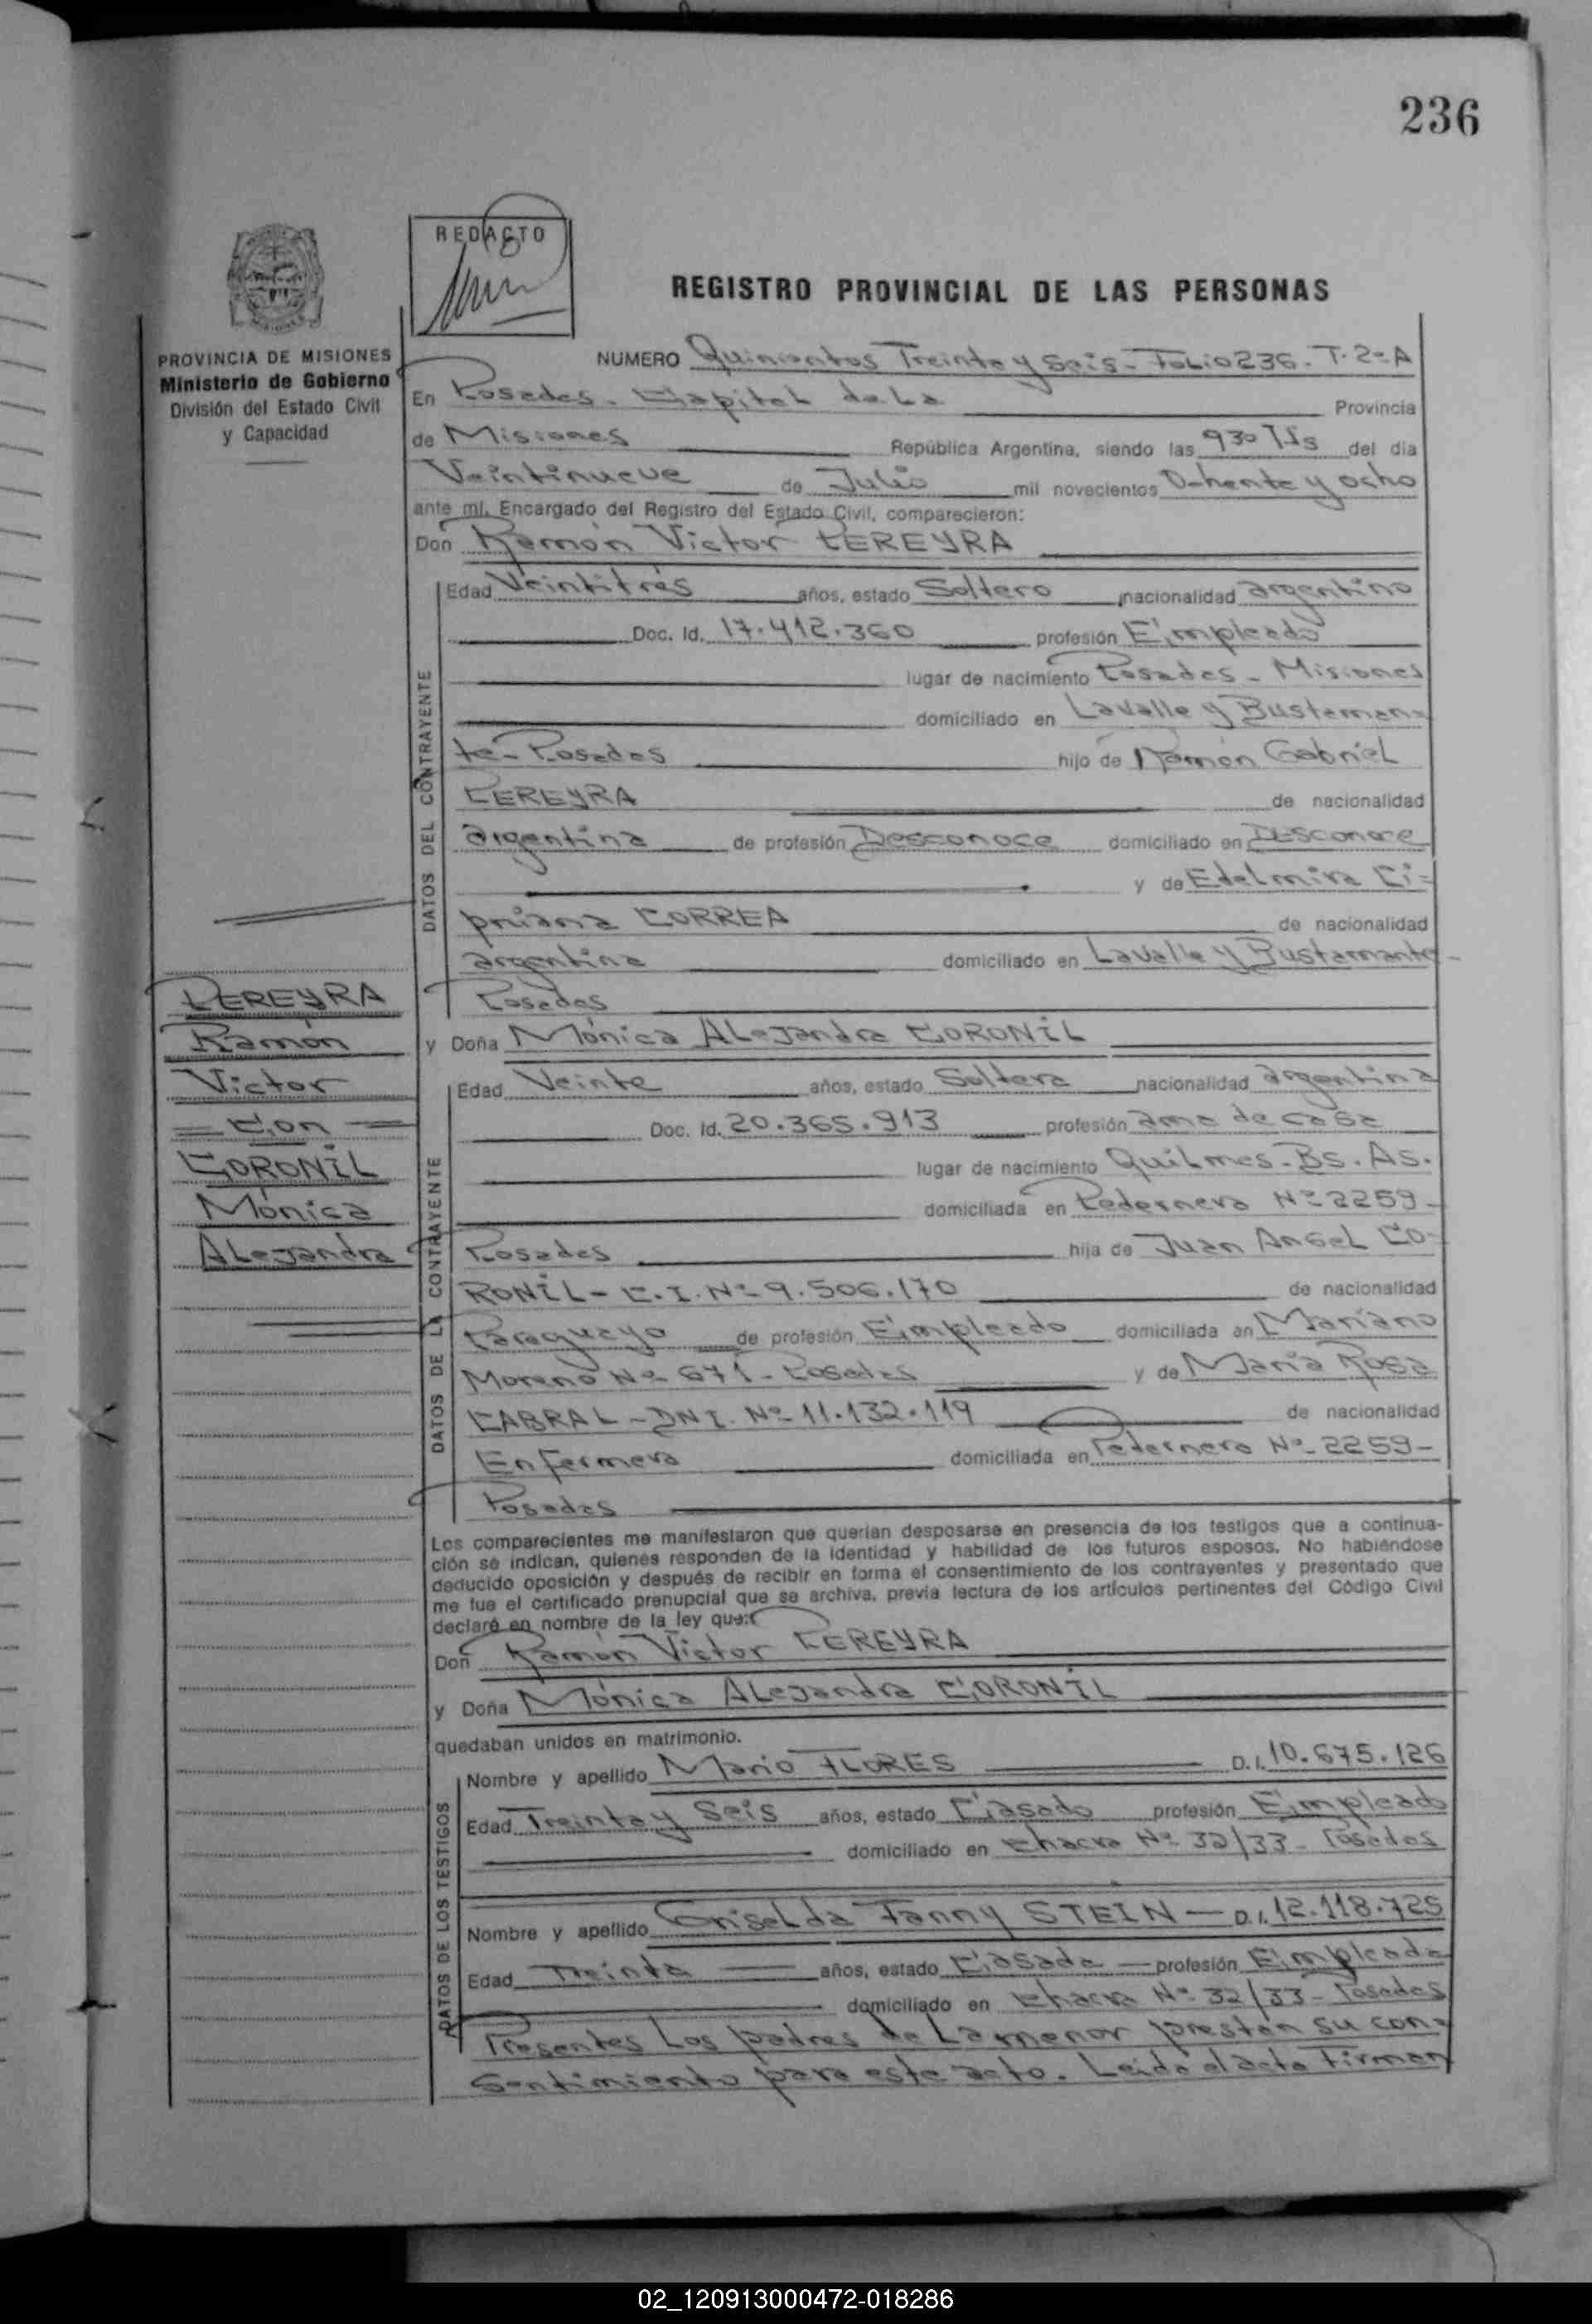 236
REDACTO
REGISTRO PROVINCIAL DE LAS PERSONAS
PROVINCIA DE MISIONES
Ministerio de Gobierno
División del Estado Civil
y Capacidad
NUMERO Quinientos Treinta y Seis - Folio 236 - T. 2º A
En Posadas - Capital de La Provincia
de Misiones República Argentina, siendo las 930 Hs del día
Veintinueve de Julio mil novecientos Ochenta y ocho
ante mí, Encargado del Registro del Estado Civil, comparecieron:
Don Ramón Victor PEREYRA
DATOS DEL CONTRAYENTE
Edad Veintitrés años, estado Soltero nacionalidad argentino
Doc. Id. 17.412.360 profesión Empleado
lugar de nacimiento Posadas - Misiones
domiciliado en Lavalle y Bustaman=
te - Posadas hijo de Ramón Gabriel
PEREYRA de nacionalidad
argentina de profesión Desconoce domiciliado en Desconoce
y de Edelmira Ci=
priana CORREA de nacionalidad
argentina domiciliado en Lavalle y Bustamante -
Posadas
PEREYRA
Ramón
Victor
= Con =
CORONIL
Mónica
Alejandra
y Doña Mónica Alejandra CORONIL
DATOS DE LA CONTRAYENTE
Edad Veinte años, estado Soltera nacionalidad argentina
Doc. Id. 20.365.913 profesión ama de casa
lugar de nacimiento Quilmes - Bs. As.
domiciliada en Pedernera Nº 2259 -
Posadas hija de Juan Angel CO-
RONIL - C.I. Nº 9.506.170 de nacionalidad
Paraguayo de profesión Empleado domiciliada en Mariano
Moreno Nº 671 - Posadas y de María Rosa
CABRAL - DNI. Nº 11.132.119 de nacionalidad
Enfermera domiciliada en Pedernera Nº 2259 -
Posadas
Los comparecientes me manifestaron que querían desposarse en presencia de los testigos que a continua-
ción se indican, quienes responden de la identidad y habilidad de los futuros esposos. No habiéndose
deducido oposición y después de recibir en forma el consentimiento de los contrayentes y presentado que
me fue el certificado prenupcial que se archiva, previa lectura de los artículos pertinentes del Código Civil
declaré en nombre de la ley que:
Don Ramón Victor PEREYRA
y Doña Mónica Alejandra CORONIL
quedaban unidos en matrimonio.
DATOS DE LOS TESTIGOS
Nombre y apellido Mario FLORES D.I. 10.675.126
Edad Treinta y Seis años, estado Casado profesión Empleado
domiciliado en Chacra Nº 32/33 - Posadas
Nombre y apellido Griselda Fanny STEIN - D.I. 12.118.725
Edad Treinta años, estado Casada - profesión Empleada
domiciliado en Chacra Nº 32/33 - Posadas
Presentes Los padres de La menor prestan su con=
sentimiento para este acto. Leída el acta Firman
02_120913000472-018286